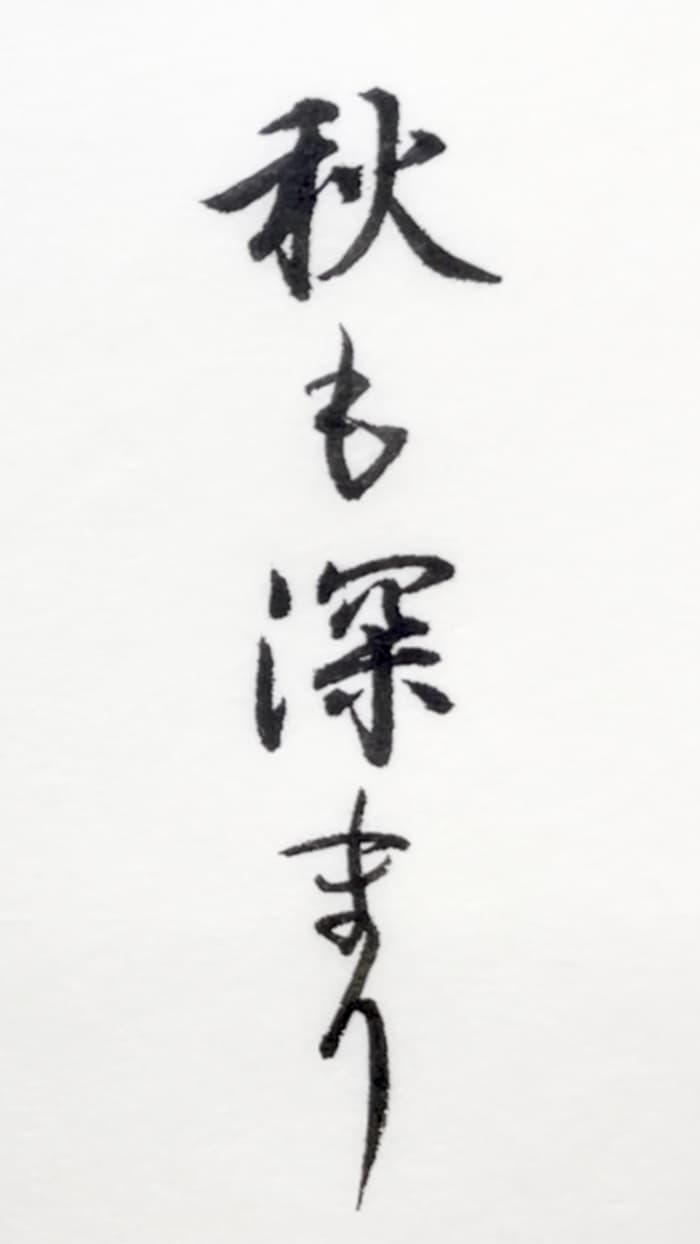 秋も深まり